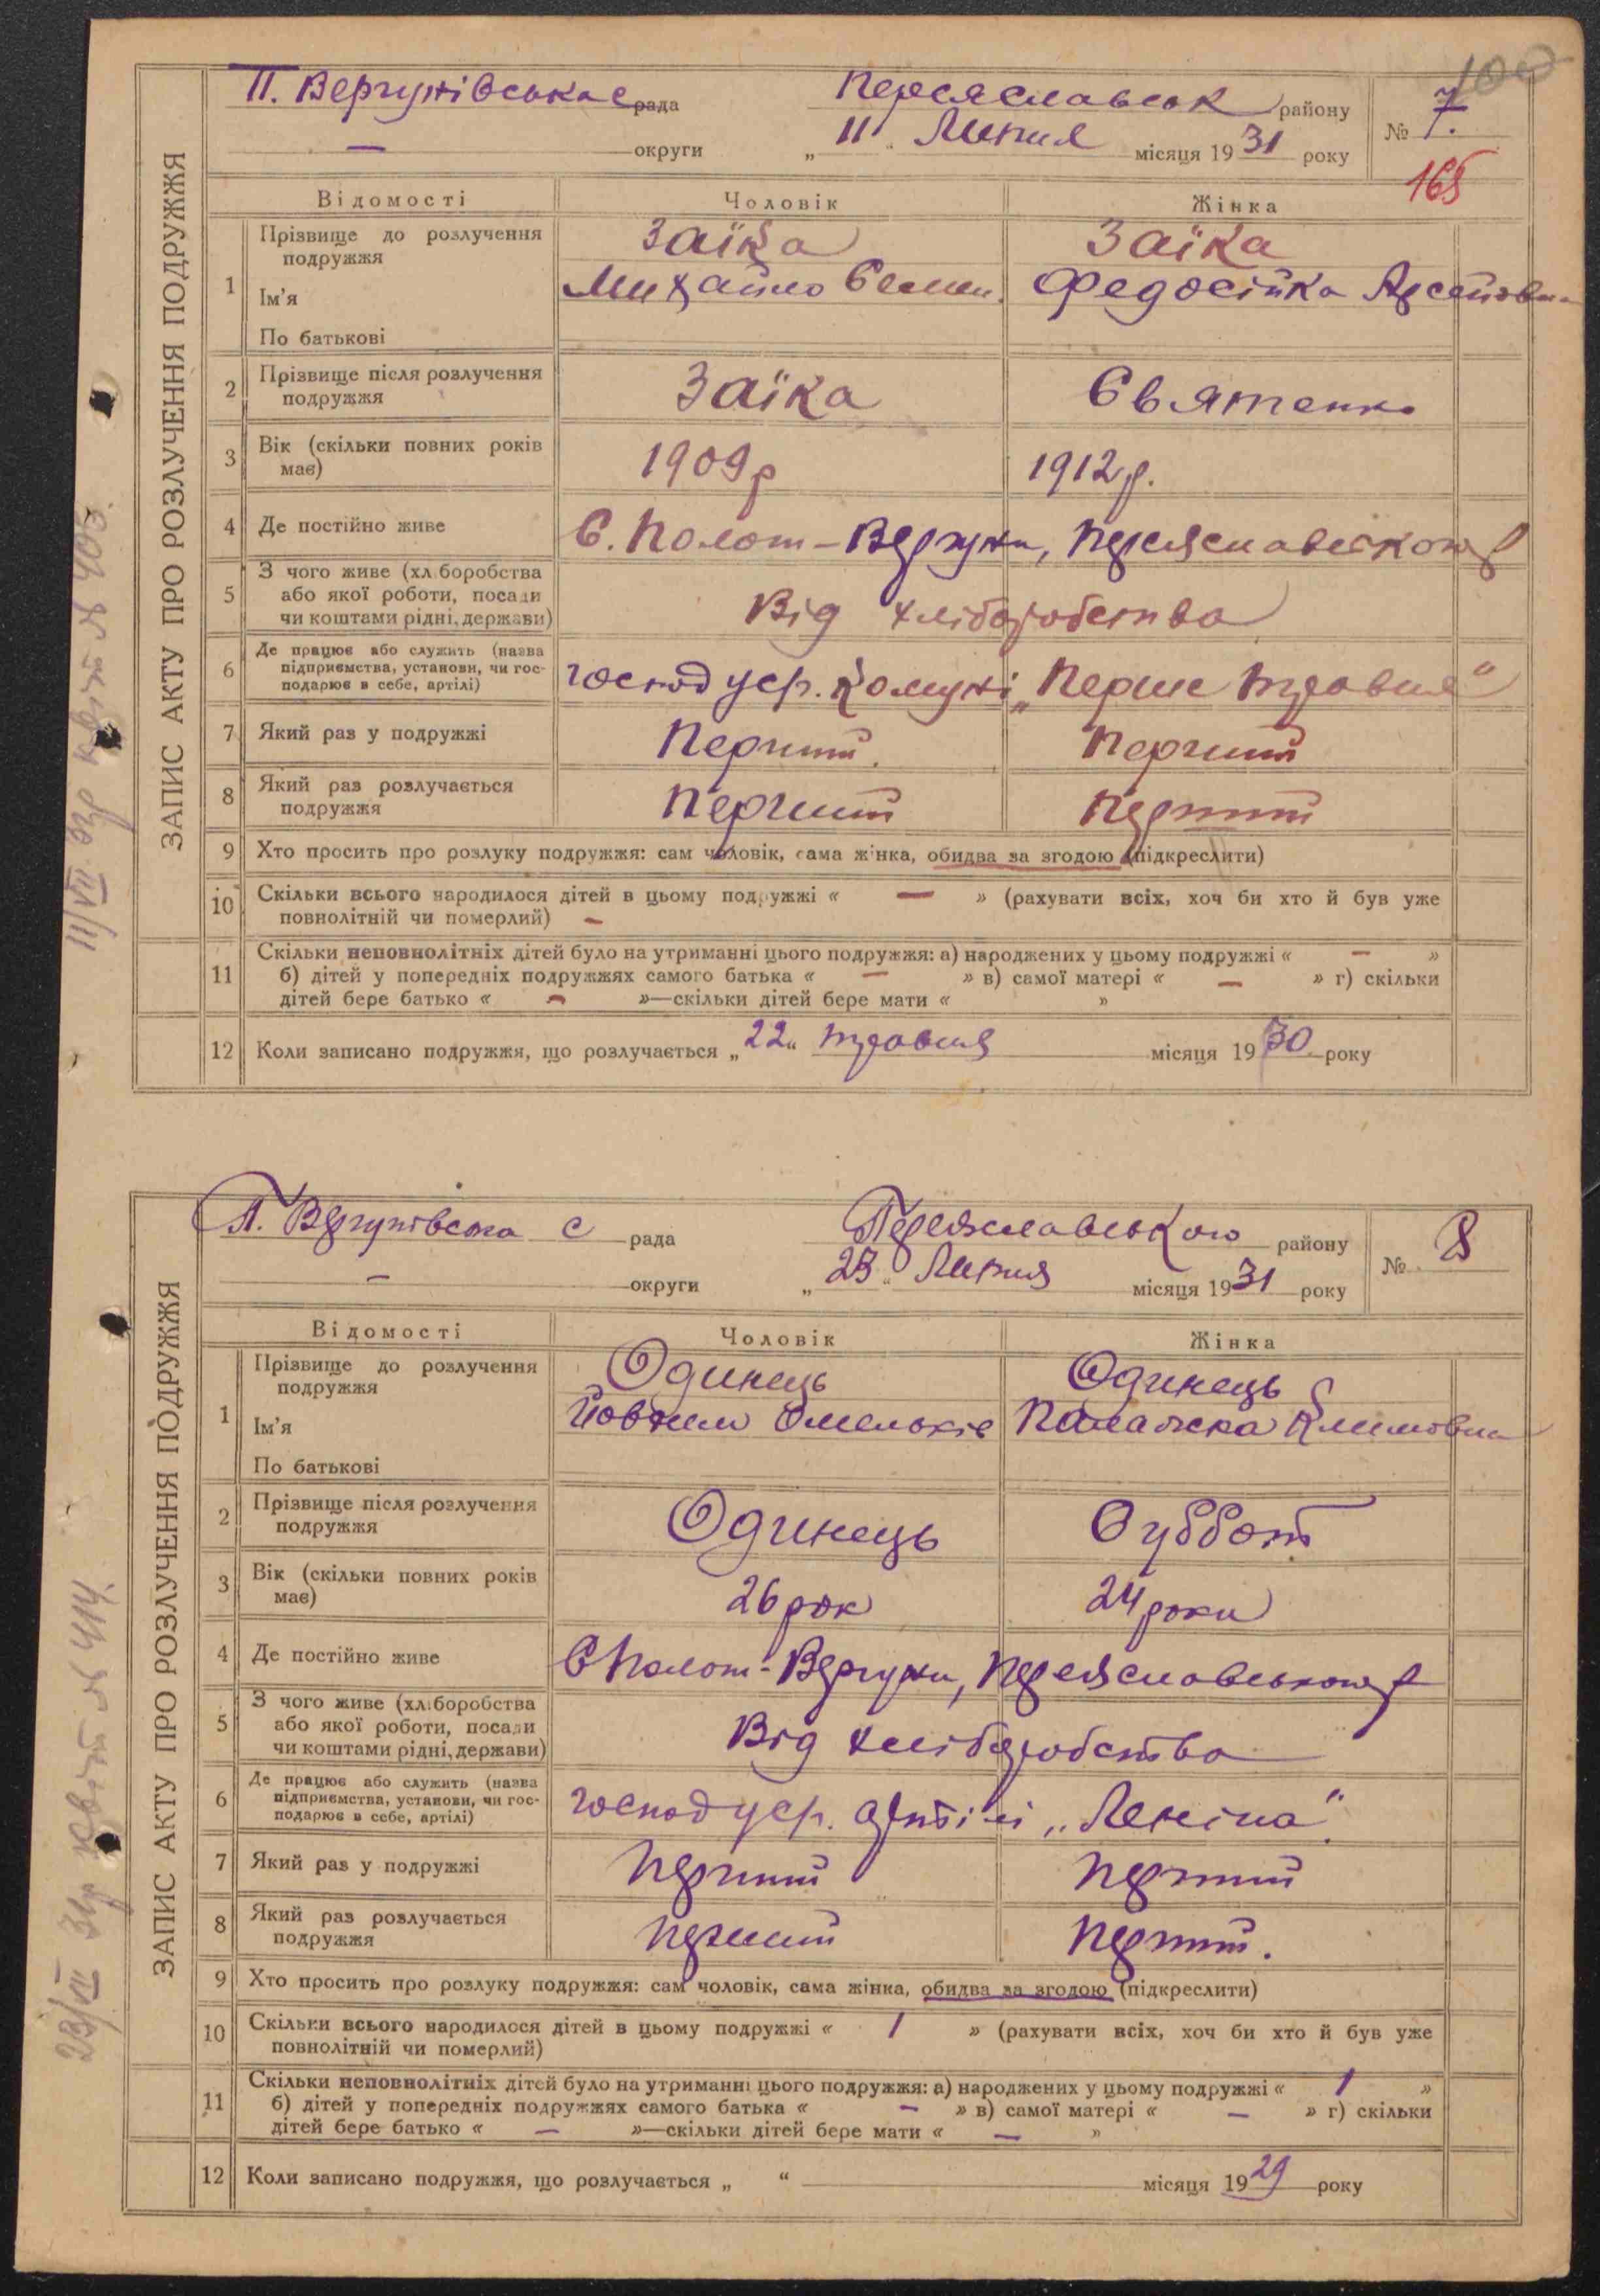 100
ЗАПИС АКТУ ПРО РОЗЛУЧЕННЯ ПОДРУЖЖЯ
П. Вергунівська с рада
Переяславськ району
№ 7.
— округи
„ 11 “ Липня місяця 1931 року
165
Відомості Чоловік Жінка
1 Прізвище до розлучення подружжя Заїка Заїка
Ім'я Михайло Семен. Федосійка Арсеновна
По батькові
2 Прізвище після розлучення подружжя Заїка Святенко
3 Вік (скільки повних років має) 1909р 1912р.
4 Де постійно живе С. Полот-Вергуни, Переяславського р
5 З чого живе (хліборобства або якої роботи, посади чи коштами рідні, держави) Від хліборобства
6 Де працює або служить (назва підприємства, установи, чи господарює в себе, артілі) господ уср. Комуні „Перше травня“
7 Який раз у подружжі Перший. Перший
8 Який раз розлучається подружжя Перший Перший
9 Хто просить про розлуку подружжя: сам чоловік, сама жінка, обидва за згодою (підкреслити)
10 Скільки всього народилося дітей в цьому подружжі « — » (рахувати всіх, хоч би хто й був уже
повнолітній чи померлий) —
11 Скільки неповнолітніх дітей було на утриманні цього подружжя: а) народжених у цьому подружжі « — »
б) дітей у попередніх подружжях самого батька « — » в) самої матері « — » г) скільки
дітей бере батько « — »—скільки дітей бере мати « »
12 Коли записано подружжя, що розлучається „ 22 “ травня місяця 1930 року
11/VII 31р квіт № 406.
ЗАПИС АКТУ ПРО РОЗЛУЧЕННЯ ПОДРУЖЖЯ
П. Вергунівська с рада
Переяславського району
№ 8
— округи
„ 23 “ Липня місяця 1931 року
Відомості Чоловік Жінка
1 Прізвище до розлучення подружжя Одинець Одинець
Ім'я Йовхим Омелькіє Палажка Климовна
По батькові
2 Прізвище після розлучення подружжя Одинець Суббот
3 Вік (скільки повних років має) 26 рок 24 роки
4 Де постійно живе С Полот-Вергуни, Переяславського р
5 З чого живе (хліборобства або якої роботи, посади чи коштами рідні, держави) Від хліборобства
6 Де працює або служить (назва підприємства, установи, чи господарює в себе, артілі) господ уср. артілі „Леніна“.
7 Який раз у подружжі Перший Перший
8 Який раз розлучається подружжя Перший Перший.
9 Хто просить про розлуку подружжя: сам чоловік, сама жінка, обидва за згодою (підкреслити)
10 Скільки всього народилося дітей в цьому подружжі « 1 » (рахувати всіх, хоч би хто й був уже
повнолітній чи померлий)
11 Скільки неповнолітніх дітей було на утриманні цього подружжя: а) народжених у цьому подружжі « 1 »
б) дітей у попередніх подружжях самого батька « — » в) самої матері « — » г) скільки
дітей бере батько « — »—скільки дітей бере мати « — »
12 Коли записано подружжя, що розлучається „ “ місяця 1929 року
23/VII 31р квіт № 414.